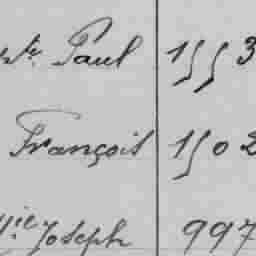 Paul 1553
François 1502
Joseph 997